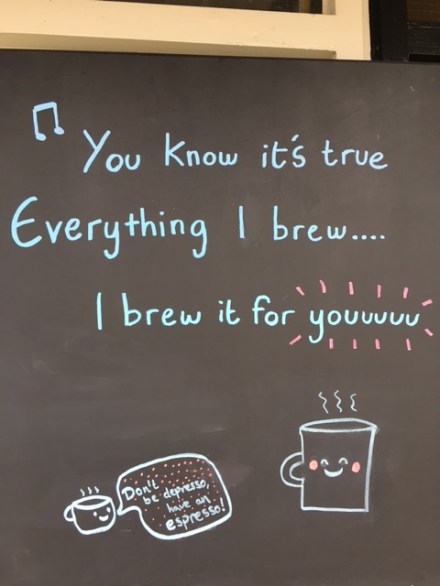 You know it's true
Everything I brew....
I brew it for youuuuu
Don't
be depresso,
have an
espresso!